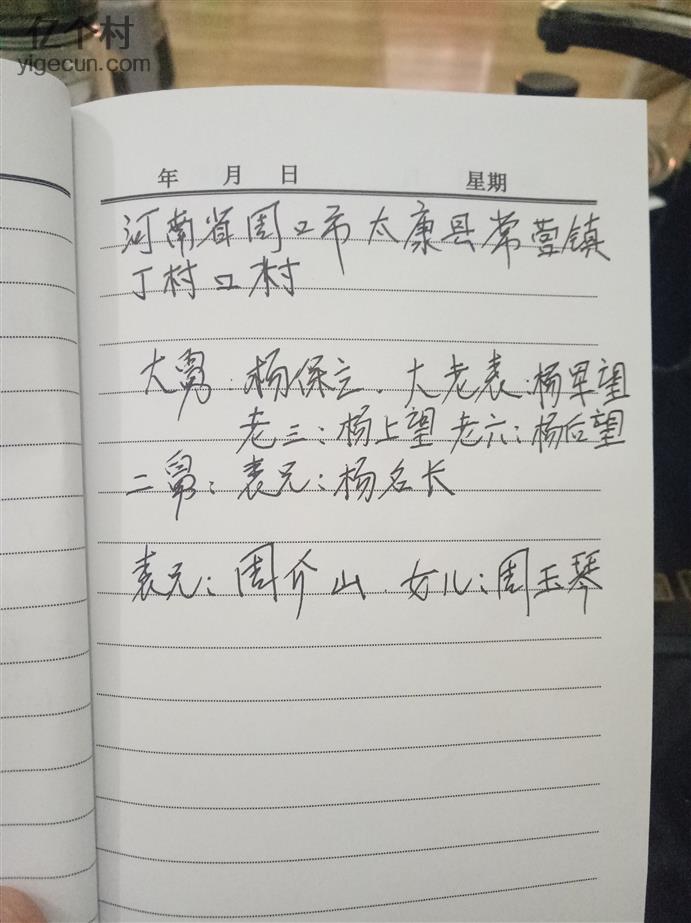 亿个村
yigecun.com
年 月 日 星期
河南省周口市太康县常营镇
丁村口村
大舅：杨保立．大老表：杨军望
老三：杨上望 老六：杨后望
二舅：表兄：杨名长
表兄：周介山．女儿：周玉琴